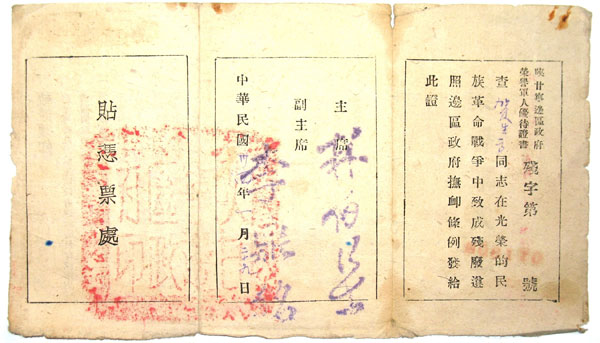 陝甘寧邊區政府
榮譽軍人優待證書 殘字第 號
查 同志在光榮的民
族革命戰爭中致成殘廢遵
照邊區政府撫卹條例發給
此證
主席 林伯渠
副主席 李鼎銘
中華民國 年 月 日
貼憑票處